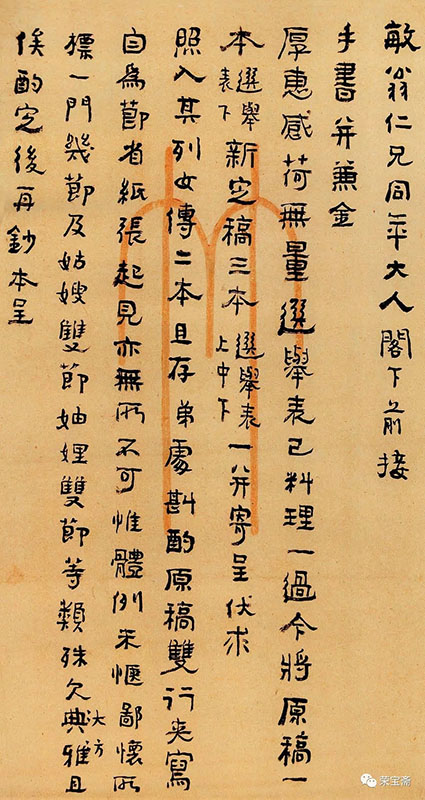 敏翁仁兄同年大人閣下前接
手書并兼金
厚惠感荷無量選舉表已料理一過今將原稿一
本選舉表下新定稿三本選舉表上中下一并寄呈伏求
照入其列女傳二本且存弟處斟酌原稿雙行夾寫
自為節省紙張起見亦無所不可惟體例未愜鄙懷所
標一門幾節及姑嫂雙節妯娌雙節等類殊欠典雅大方且
俟酌定後再鈔本呈
荣宝斋